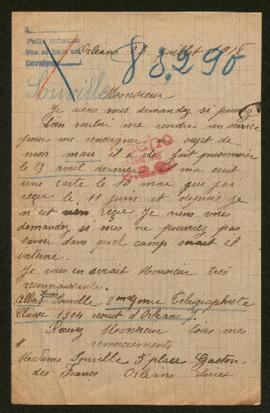 Orléans juillet 1918
83.290
Souville
Monsieur
Je viens vous demandez si
bien vouloir me rendre un service
pour me renseigner au sujet de
mon mari il a été fait prisonnier
le avril dernier ma
une carte le 16 mai que j'ai
reçue le 11 juin et depuis je
n'est rien reçu Je viens vous
demandez si vous ne pourriez pas
savoir dans quel camp serait il
interné
Je vous en serait Monsieur très
reconnaissante.
Souville 8 Télégraphiste
Classe 1904 recruté d'Orléans
Recevez Monsieur tous mes
remerciements
Madame Souville 5 place Gaston
des Francs Orléans Loiret